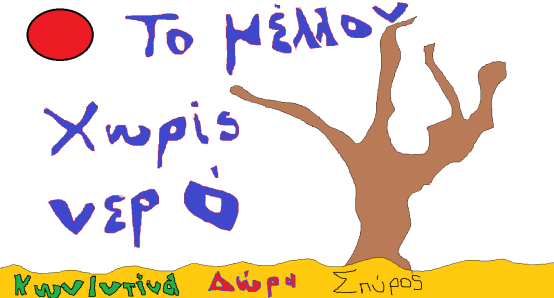 Το μέλλον
Χωρίς
νερό
Κων/ντίνα Δώρα Σπύρος